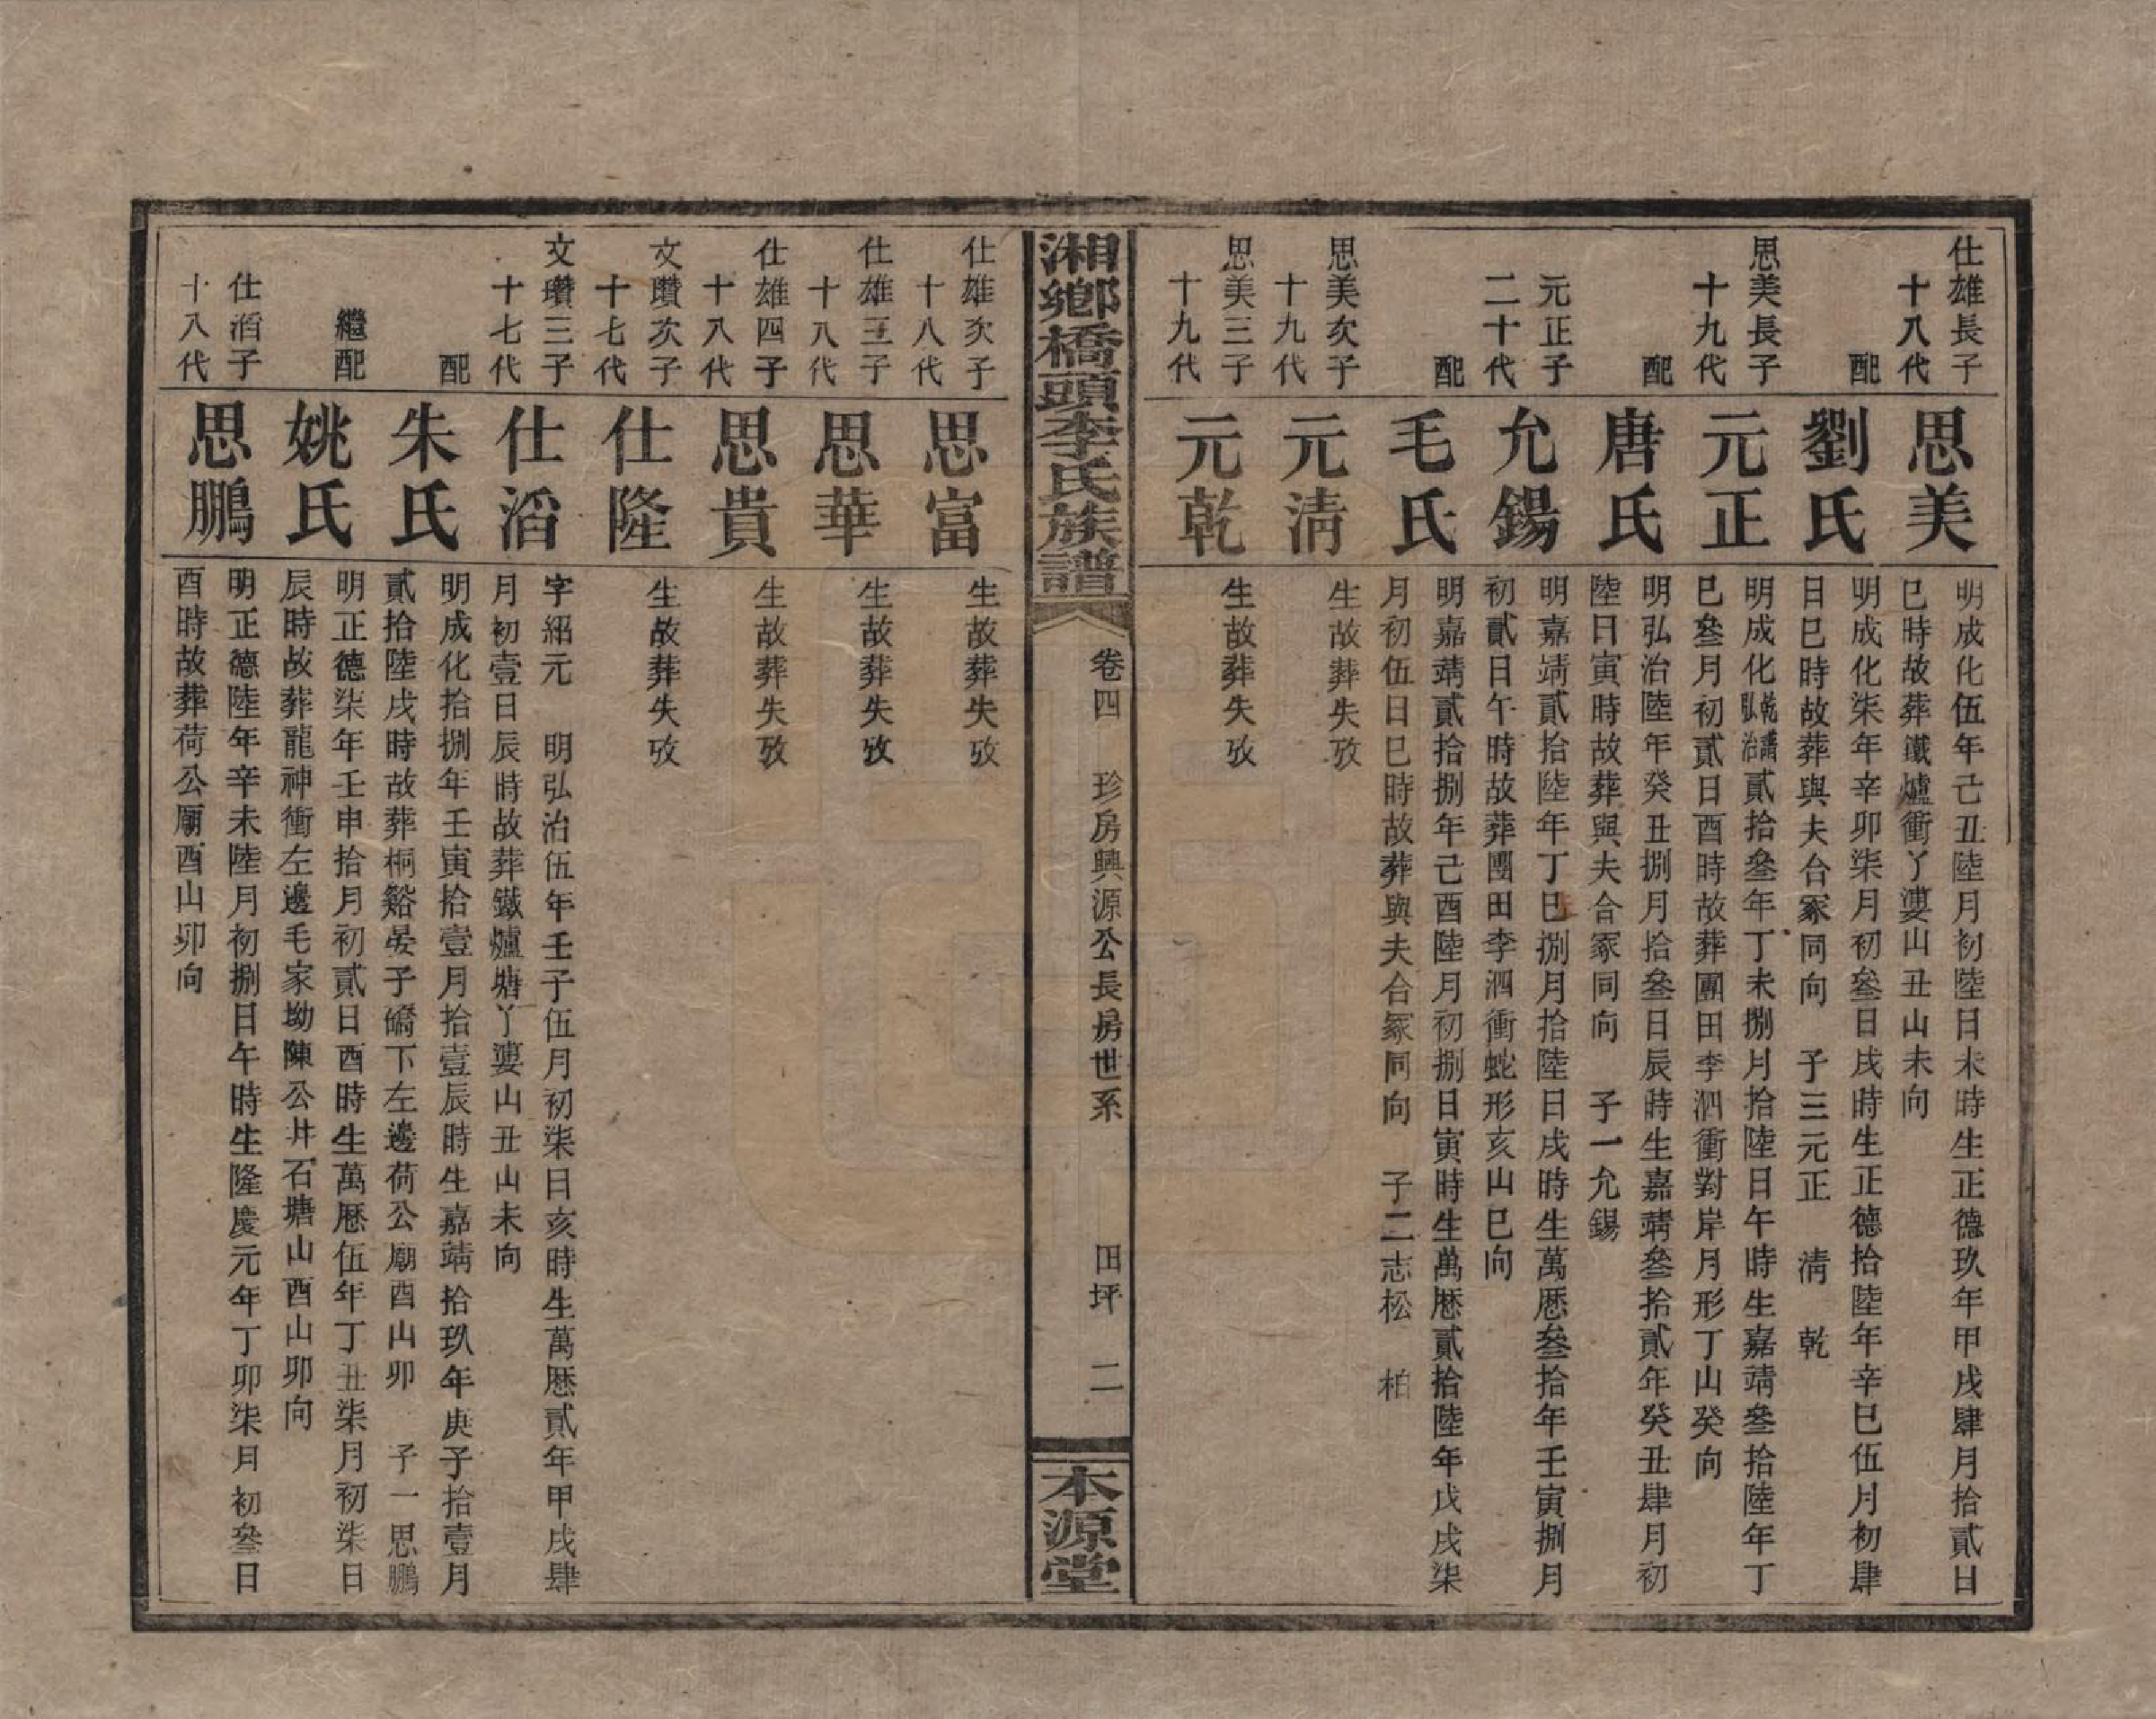 仕雄長子
十八代
思美
明成化伍年己丑陸月初陸日未時生正德玖年甲戌肆月拾貳日
巳時故葬鐵爐衝丫婁山丑山未向
配
劉氏
明成化柒年辛卯柒月初叄日戌時生正德拾陸年辛巳伍月初肆
日巳時故葬與夫合冢同向　子三元正　清　乾
思美長子
十九代
元正
明成化乾譜弘治貳拾叄年丁未捌月拾陸日午時生嘉靖叄拾陸年丁
巳叄月初貳日酉時故葬團田李泗衝對岸月形丁山癸向
配
唐氏
明弘治陸年癸丑捌月拾叄日辰時生嘉靖叄拾貳年癸丑肆月初
陸日寅時故葬與夫合冢同向　子一允錫
元正子
二十代
允錫
明嘉靖貳拾陸年丁巳捌月拾陸日戌時生萬厯叄拾年壬寅捌月
初貳日午時故葬團田李泗衝蛇形亥山巳向
配
毛氏
明嘉靖貳拾捌年己酉陸月初捌日寅時生萬厯貳拾陸年戊戌柒
月初伍日巳時故葬與夫合冢同向　子二志松　柏
思美次子
十九代
元清
生故葬失攷
思美三子
十九代
元乾
生故葬失攷
湘鄉橋頭李氏族譜
卷四　珍房興源公長房世系　田坪　二
本源堂
仕雄次子
十八代
思富
生故葬失攷
仕雄三子
十八代
思華
生故葬失攷
仕雄四子
十八代
思貴
生故葬失攷
文瓚次子
十七代
仕隆
生故葬失攷
文瓚三子
十七代
仕滔
字紹元　明弘治伍年壬子伍月初柒日亥時生萬厯貳年甲戌肆
月初壹日辰時故葬鐵爐塘丫婁山丑山未向
配
朱氏
明成化拾捌年壬寅拾壹月拾壹辰時生嘉靖拾玖年庚子拾壹月
貳拾陸戌時故葬桐谿晏子礄下左邊荷公廟酉山卯　子一思鵬
繼配
姚氏
明正德柒年壬申拾月初貳日酉時生萬厯伍年丁丑柒月初柒日
辰時故葬龍神衝左邊毛家坳陳公井石塘山酉山卯向
仕滔子
十八代
思鵬
明正德陸年辛未陸月初捌日午時生隆慶元年丁卯柒月初叄日
酉時故葬荷公廟酉山卯向